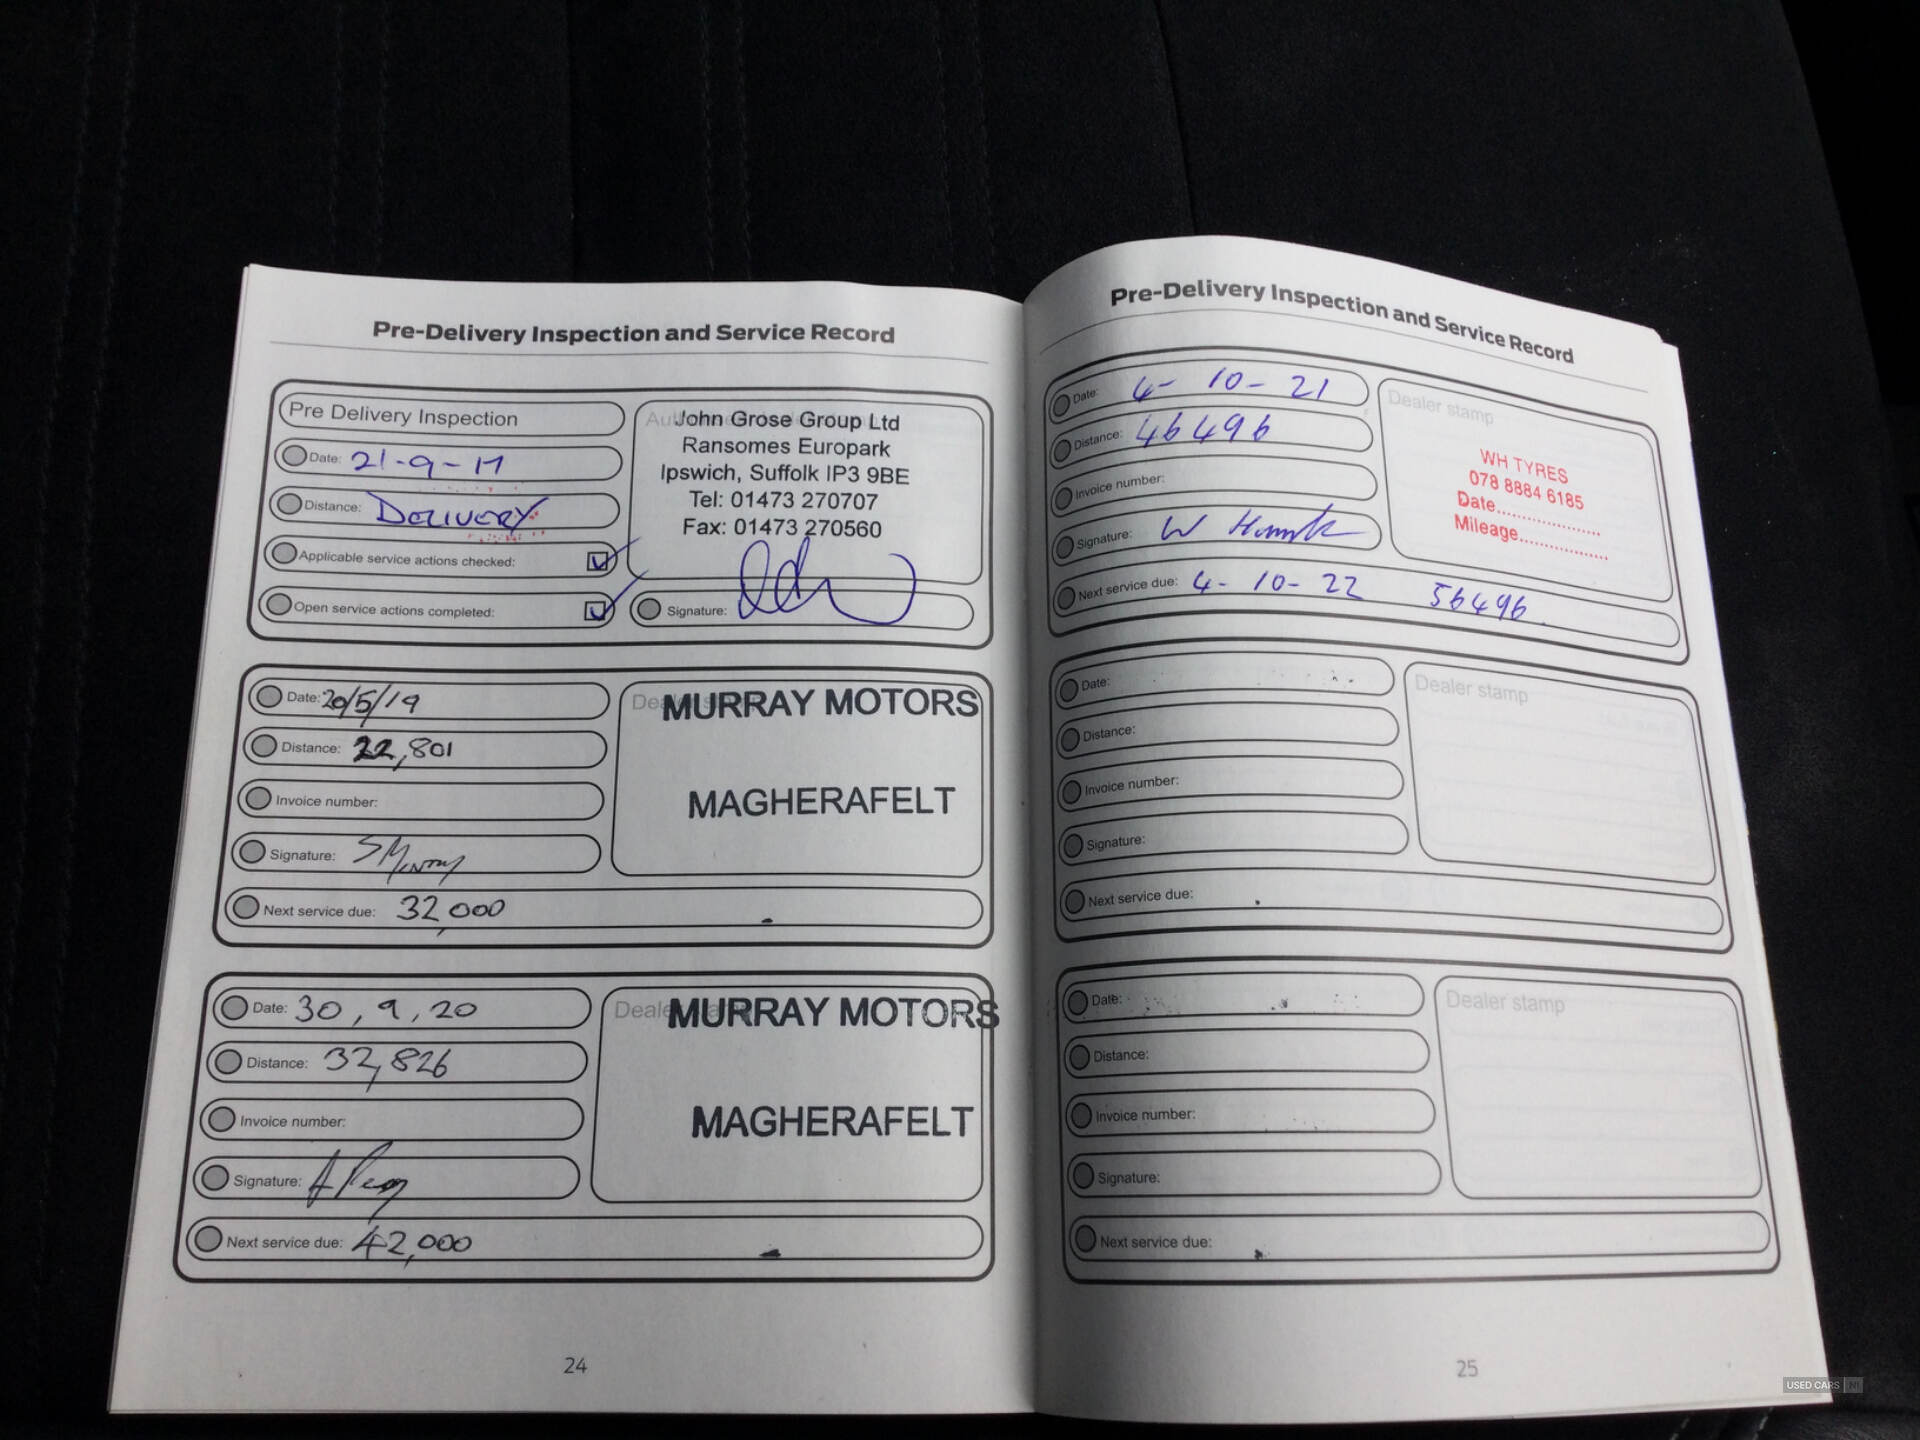 Pre-Delivery Inspection and Service Record
Pre Delivery Inspection
Date: 21-9-17
Distance: DELIVERY
Applicable service actions checked:
Open service actions completed:
John Grose Group Ltd
Ransomes Europark
Ipswich, Suffolk IP3 9BE
Tel: 01473 270707
Fax: 01473 270560
Signature:
Date: 20/5/19
Distance: 22,801
Invoice number:
Signature: S Murray
Next service due: 32,000
Dealer stamp
MURRAY MOTORS
MAGHERAFELT
Date: 30,9,20
Distance: 32,826
Invoice number:
Signature:
Next service due: 42,000
Dealer stamp
MURRAY MOTORS
MAGHERAFELT
24
Pre-Delivery Inspection and Service Record
Date: 4-10-21
Distance: 46496
Invoice number:
Signature: W
Next service due: 4-10-22 56496
Dealer stamp
WH TYRES
078 8884 6185
Date....................
Mileage..................
Date:
Distance:
Invoice number:
Signature:
Next service due:
Dealer stamp
Date:
Distance:
Invoice number:
Signature:
Next service due:
Dealer stamp
25
USED CARS NI